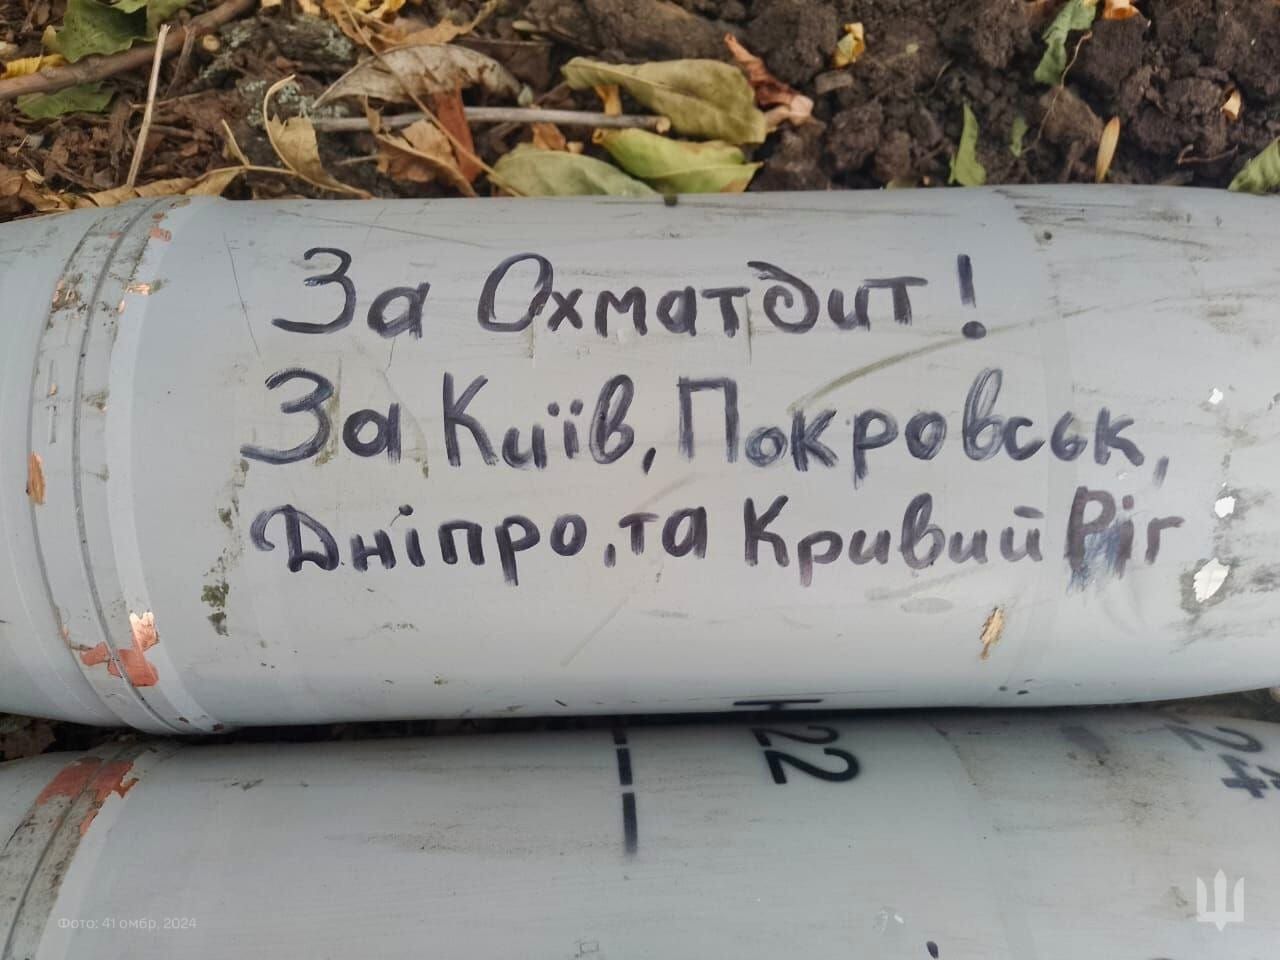 За Охматдит!
За Київ, Покровськ,
Дніпро, та Кривий Ріг
22
24
Фото: 41 омбр, 2024